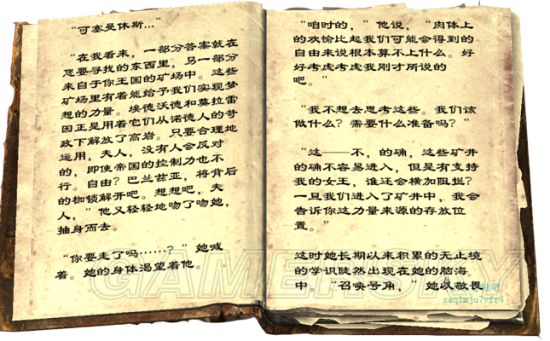 “可塞曼休斯…”
“在我看来，一部分答案就在
您要寻找的东西里，另一部分
来自于你王国的矿场中。这些
矿场里有着能给予我们实现梦
想的力量。埃德沃德和莫拉雷
因正是用着它们从诺德人的苛
政下解放了高岩。只要合理地
运用，夫人，没有人会反对
的，即使帝国的控制力也不
行。自由？巴兰兹亚，将背后
的枷锁解开吧。想想吧，夫
人，”他又轻轻地吻了吻她，
抽身而去。
“你要走了吗……？”她喊
着。她的身体渴望着他。
“咱时的，”他说，“肉体上
的欢愉比起我们可能会得到的
自由来说根本算不上什么。好
好考虑考虑我刚才所说的
吧。”
“我不想去思考这些。我们该
做什么？需要什么准备吗？”
“这——不，的确，这些矿井
的确不容易进入，但是有支持
我的女王，谁还会横加阻拦？
一旦我们进入了矿井中，我会
告诉你这力量来源的存放位
置。”
这时她长期以来积累的无止境
的学识陡然出现在她的脑海
中。“召唤号角，”她以敬畏
GAMERSKY
zaq1mju7vfr4